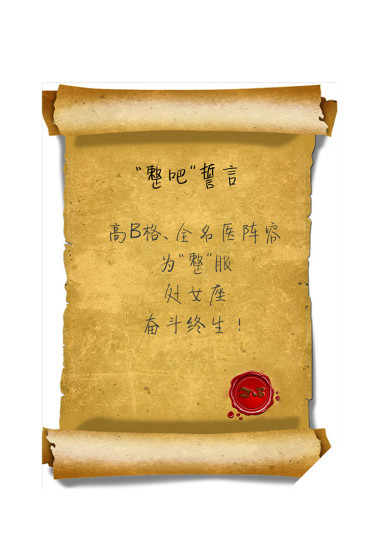 “整吧”誓言
高B格、全名医阵容
为“整”服
处女座
奋斗终生！